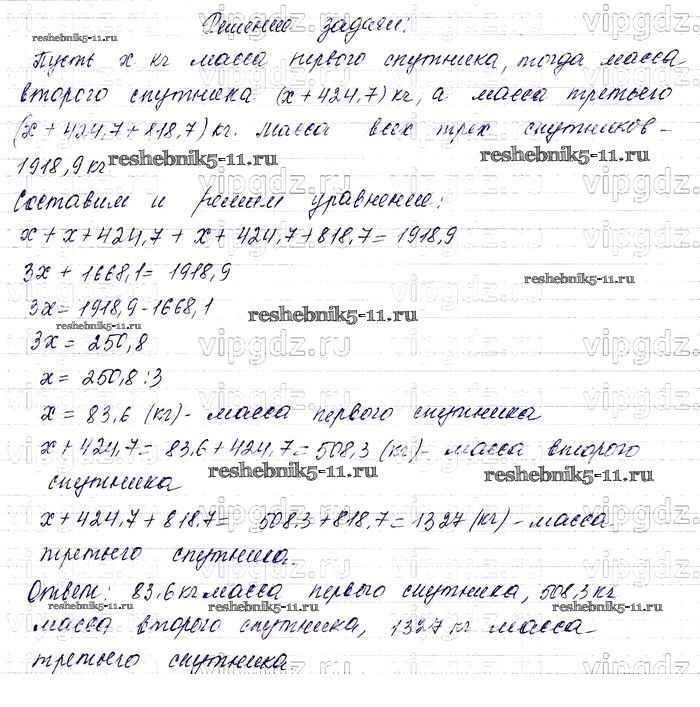 Решение задачи:
Пусть x кг масса первого спутника, тогда масса
второго спутника (x+424,7) кг, а масса третьего
(x+424,7+818,7) кг. Масса всех трех спутников -
1918,9 кг
Составим и решим уравнение:
x + x + 424,7 + x + 424,7 + 818,7 = 1918,9
3x + 1668,1 = 1918,9
3x = 1918,9 - 1668,1
3x = 250,8
x = 250,8 : 3
x = 83,6 (кг) - масса первого спутника
x + 424,7 = 83,6 + 424,7 = 508,3 (кг) - масса второго
спутника
x + 424,7 + 818,7 = 508,3 + 818,7 = 1327 (кг) - масса
третьего спутника.
Ответ: 83,6 кг масса первого спутника, 508,3 кг
масса второго спутника, 1327 кг масса
третьего спутника.
reshebnik5-11.ru
reshebnik5-11.ru
reshebnik5-11.ru
reshebnik5-11.ru
reshebnik5-11.ru
reshebnik5-11.ru
reshebnik5-11.ru
reshebnik5-11.ru
reshebnik5-11.ru
reshebnik5-11.ru
vipgdz.ru
vipgdz.ru
vipgdz.ru